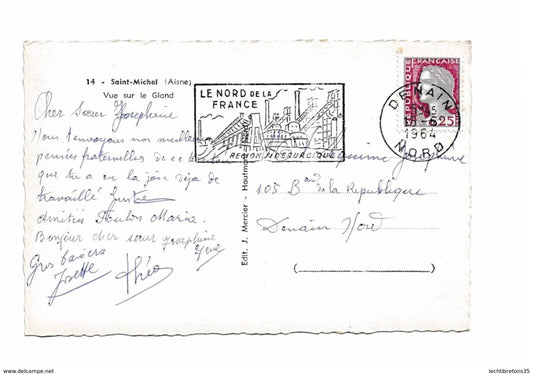 14 - Saint-Michel (Aisne)
Vue sur le Gland
Cher Sœur Josephine
Nous t'envoyons nos meilleures
pensées fraternelles de ce
que tu a eu la joie déja de
travaillé
Amitiés Maria
Bonjour cher sœur Josephine
Gros baisers
Josette
Théo
LE NORD DE LA
FRANCE
REGION SIDERURGIQUE
REPUBLIQUE FRANCAISE
0,25
DENAIN
18-6
1964
NORD
Edit. J. Mercier - Hautmont
Josephine
105 Bard de la Republique
Denain Nord
(
)
www.delcampe.net
lechtbretons35